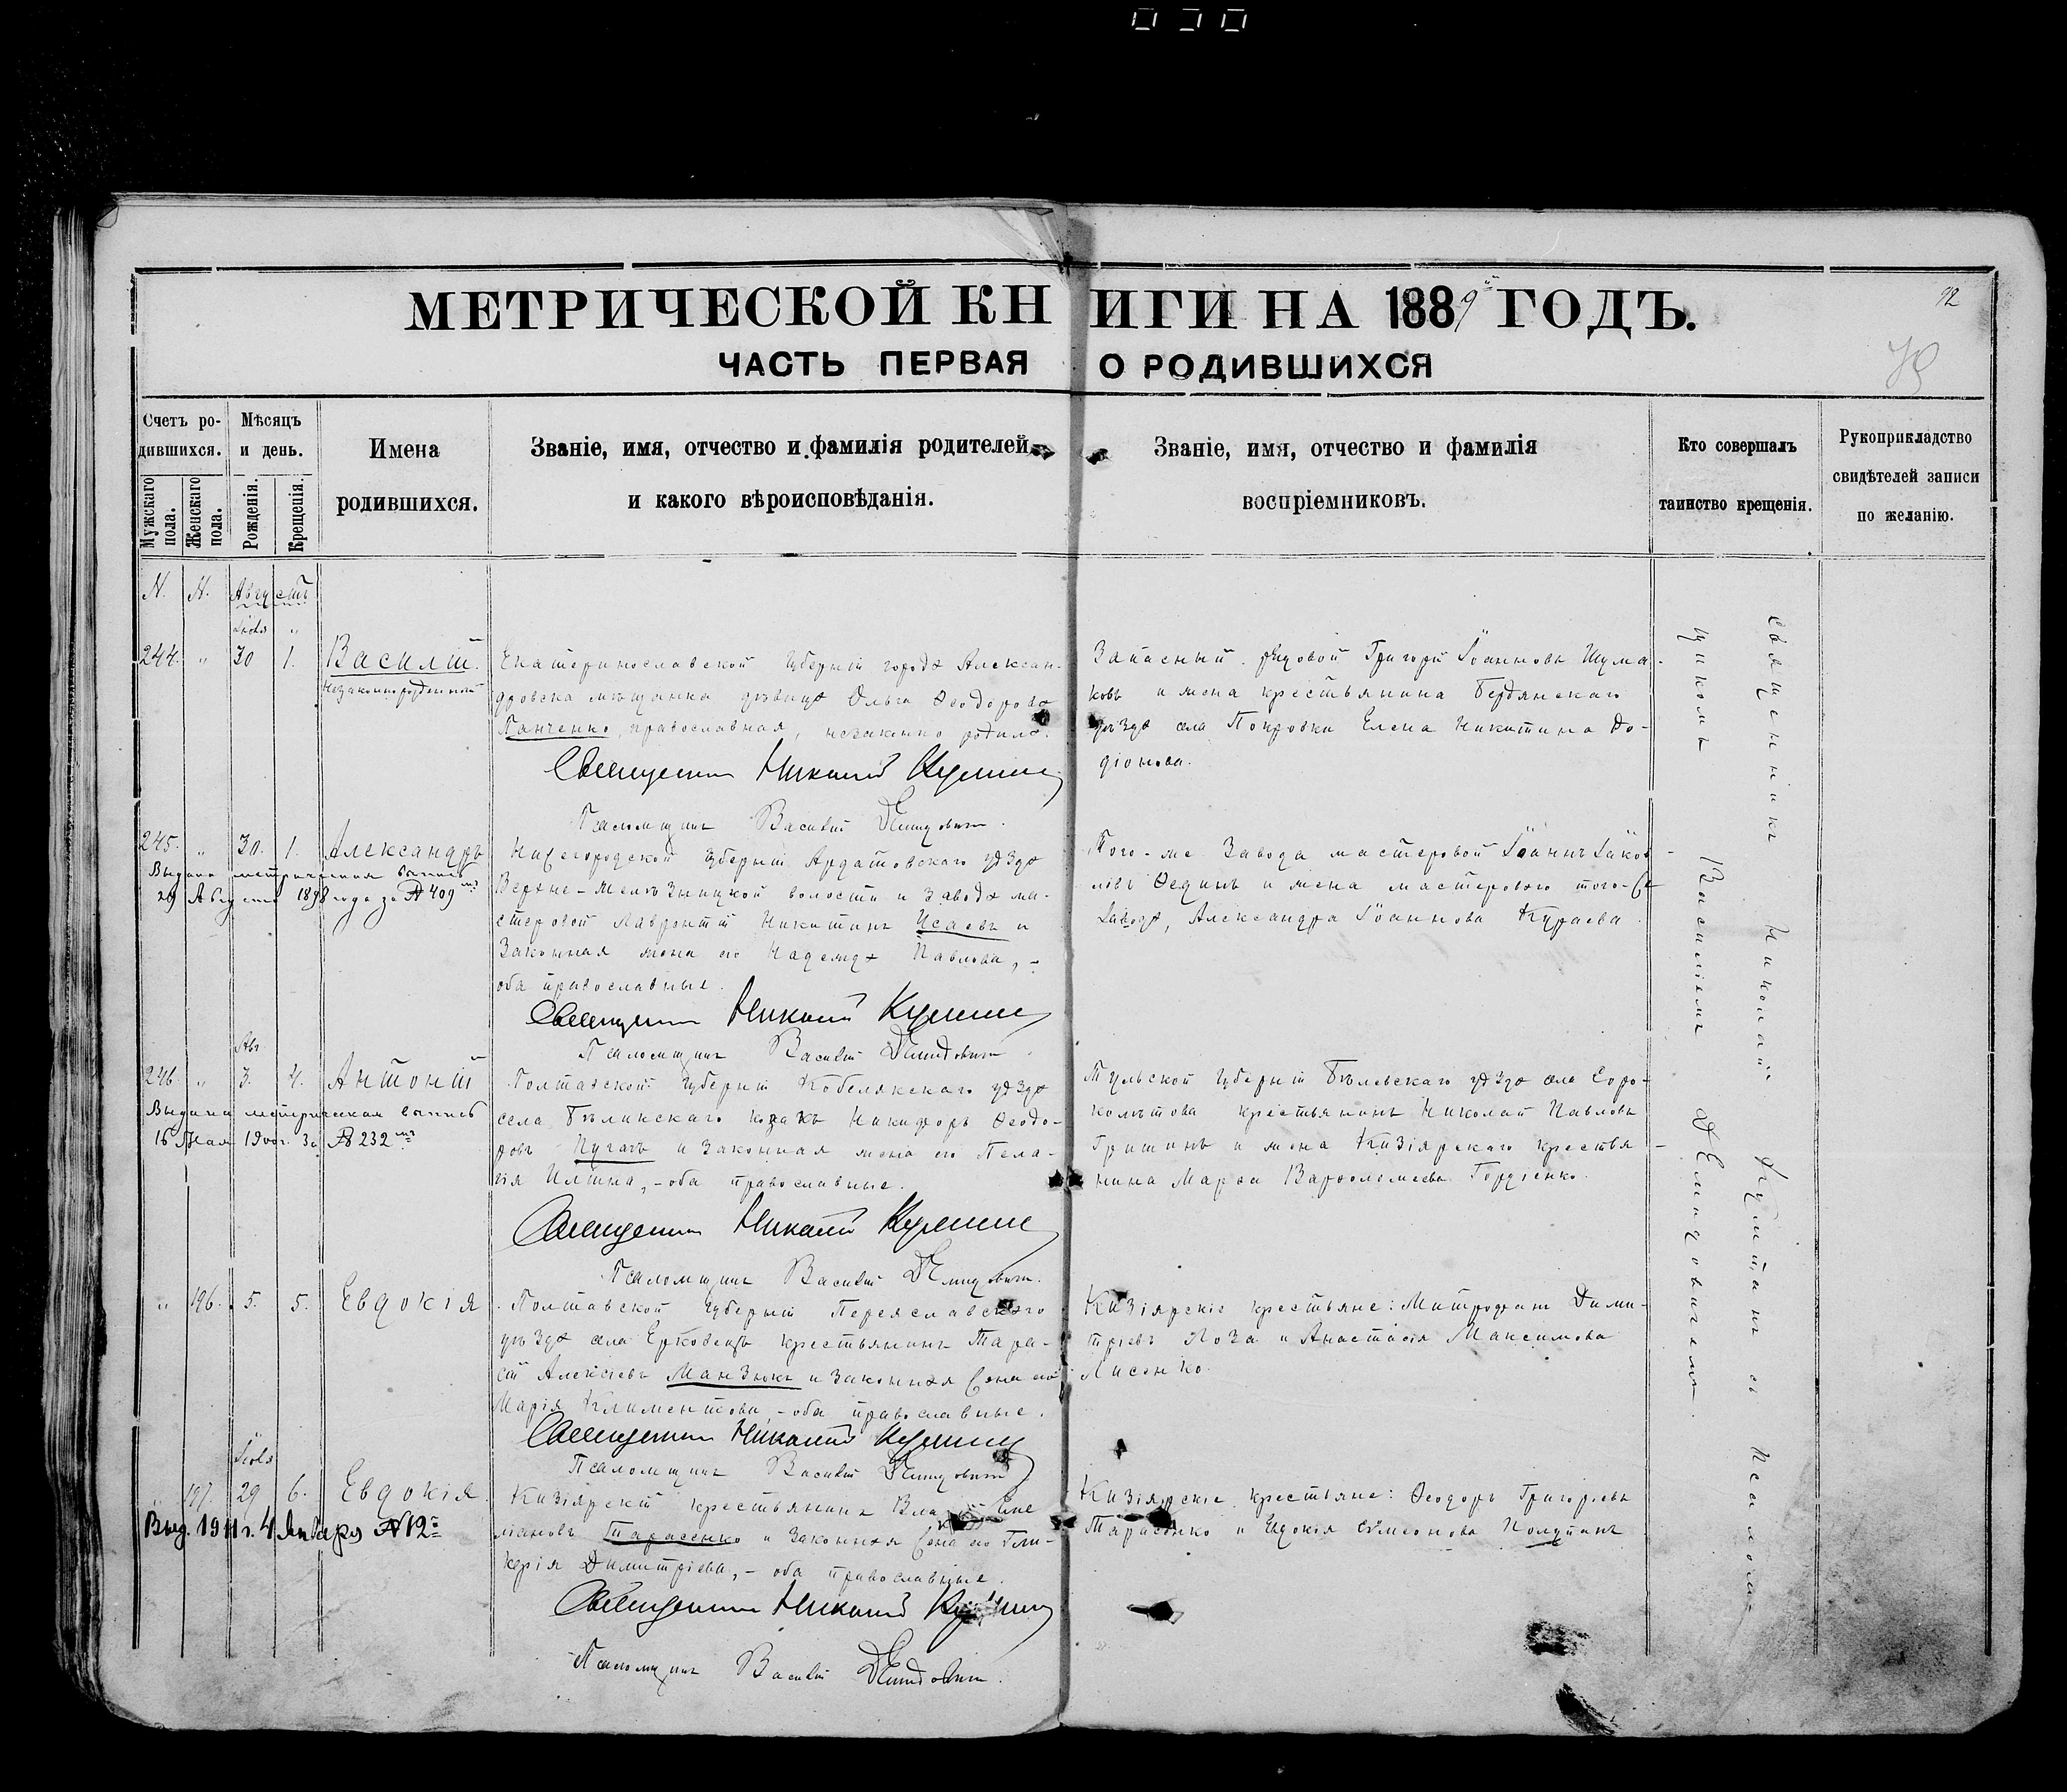 МЕТРИЧЕСКОЙ КНИГИ НА 1889й ГОДЪ.
92
ЧАСТЬ ПЕРВАЯ О РОДИВШИХСЯ
Счетъ ро-
дившихся.
Мужскаго пола.
Женскаго пола.
Мѣсяцъ
и день.
Рожденія.
Крещенія.
Имена
родившихся.
Званіе, имя, отчество и фамилія родителей
и какого вѣроисповѣданія.
Званіе, имя, отчество и фамилія
воспріемниковъ.
Кто совершалъ
таинство крещенія.
Рукоприкладство
свидѣтелей записи
по желанію.
N. N. Августъ
Іюля „
244. „ 30 1. Василій.
Незаконнорожденный
Екатеринославской губерніи города Алексан-
дровска мѣщанка дѣвица Ольга Ѳеодорова
Панченко, православная, незаконно родила.
Священникъ Николай
Псаломщикъ Василій Демидовичъ.
Запасный рядовой Григорій Іоанновъ Шума-
ковъ и жена крестьянина Бердянскаго
уѣзда села Покровки Елена Никитина До-
діонова.
245. „ 30. 1. Александръ
Выдана метрическая выпись
29 Августа 1898 года за № 409мъ
Нижегородской губерніи Ардатовскаго уѣзда
волости и завода ма-
стеровой Лаврентій Никитинъ Исаевъ и
законная жена его Надежда Павлова, -
оба православные.
Священникъ Николай
Псаломщикъ Василій Демидовичъ.
Того-же завода мастеровой Іоаннъ Іаков-
левъ Ѳединъ и жена мастероваго того-же
завода, Александра Іоаннова Кураева.
Авг
246. „ 3. 4. Антоній
Выдана метрическая выпись
16 Мая 190 г. за № 232мъ
Полтавской губерніи Кобелякскаго уѣзда
села Бѣликскаго козакъ Никифоръ Ѳеодо-
ровъ Пугачъ и законная жена его Пела-
гія Ильина, - оба православные.
Священникъ Николай
Псаломщикъ Василій Демидовичъ.
Тульской губерніи Бѣлевскаго уѣзда села Соро-
колѣтова крестьянинъ Николай Павловъ
Гришинъ и жена Кизіярскаго крестья-
нина Марѳа Варѳоломеева Гордіенко.
„ 196. 5. 5. Евдокія
Полтавской губерніи Переяславскаго
уѣзда села Ерковецъ крестьянинъ Тара-
сій Алексіевъ Манзюкъ и законная жена его
Марія Климентова, - оба православные.
Священникъ Николай
Псаломщикъ Василій Демидовичъ
Кизіярскіе крестьяне: Митрофанъ Дими-
тріевъ Лоза и Анастасія Максимова
Лисенко.
Іюля
197. 29 6. Евдокія.
Выд. 1911 г. 4 Января № 12
Кизіярскій крестьянинъ
Тарасенко и законная жена его Гли-
керія Димитріева, - оба православные.
Священникъ Николай
Псаломщикъ Василій Демидовичъ.
Кизіярскіе крестьяне: Ѳеодоръ Григоріевъ
Тарасенко и Евдокія Симеонова
Священникъ Николай съ Псалом-
щикомъ Василіемъ Демидовичемъ.